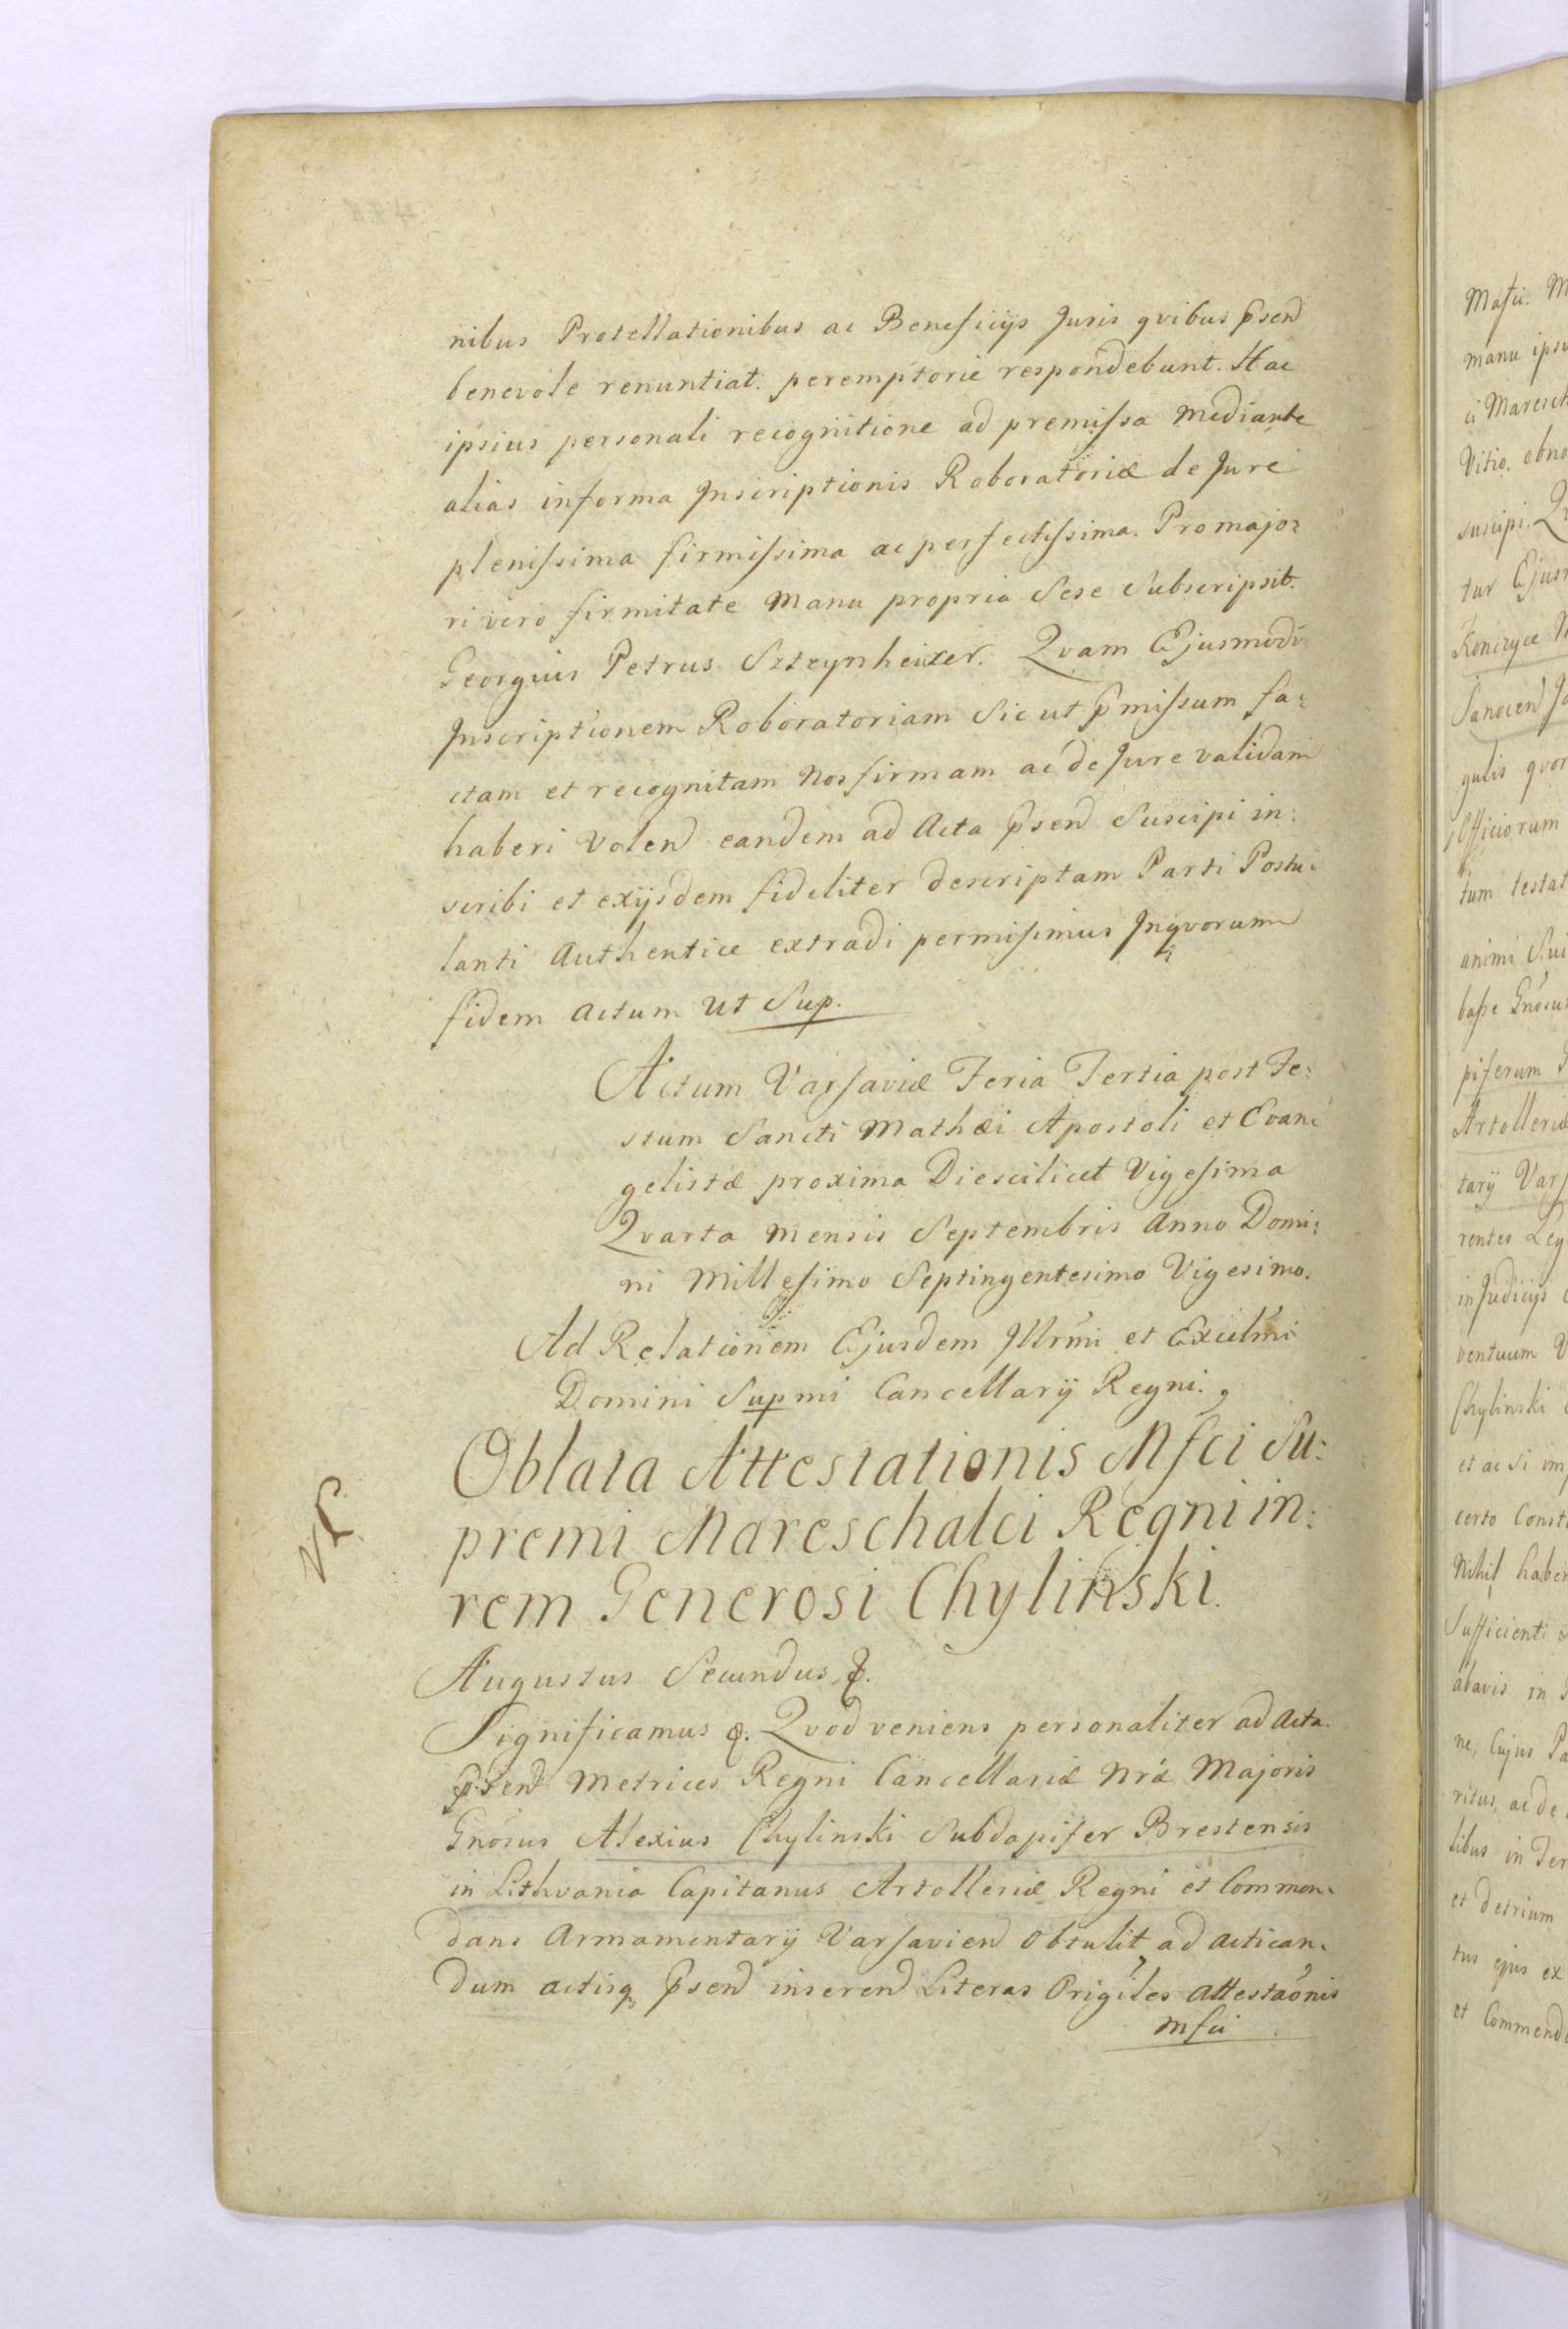 nibus Protestationibus ac Beneficijs Juris qvibus p̃send
benevole renuntiat. peremptorie respondebunt. Hac
ipsius personali recognitione ad premissa mediante
alias in forma Inscriptionis Roboratoriæ de Jure
plenissima firmissima ac perfectissima. Pro majo=
ri vero firmitate manu propria Sese Subscripsit.
Georgius Petrus Szteynheixer. Qvam Ejusmodi
Inscriptionem Roboratoriam Sic ut p̃missum fa=
ctam et recognitam Nos firmam ac de Jure validam
haberi volend eandem ad Acta p̃send Suscipi in=
scribi et exijsdem fideliter descriptam Parti Postu=
lanti Authentice extradi permisimus Inqvorum
fidem Actum ut Sup.
Actum Varsaviæ Feria Tertia post Fe=
stum Sancti Mathæi Apostoli et Evan=
gelistæ proxima Die scilicet Vigesima
Qvarta mensis Septembris Anno Domi=
ni Millesimo Septingentesimo Vigesimo.
Ad Relationem Ejusdem Illrmi et Excellmi
Domini Supmi Cancellarij Regni.
Oblata Attestationis Mfci Su=
premi Mareschalci Regni in=
rem Generosi Chylinski.
Augustus Secundus &.
Significamus &. Qvod veniens personaliter ad Acta
p̃send Metrices Regni Cancellariæ Nræ Majoris
Gnosus Alexius Chylinski Subdapifer Brestensis
in Lithvania Capitanus Artolleriæ Regni et Commen=
dans Armamentarij Varsaviend Obtulit ad actican=
dum actisq p̃send inserend Literas Origiles attestaonis
Mfci
Mafci. M
manu ips
ci Maresch
Vitio, obno
suscipi. Q
tur Ejusm
gulis qvor
Officiorum
tum testat
animi Sui
basse Gnosus
piferum
Artolleriæ
tarij Vars
rentes Leg
in Judicijs
ventuum V
Chylinski
et ac si
certo Const
Nihil haber
Sufficienti
abavis in
ne, Cujus Pa
ritus, ac de
libus in
et detrium
tus ejus ex
et Commend